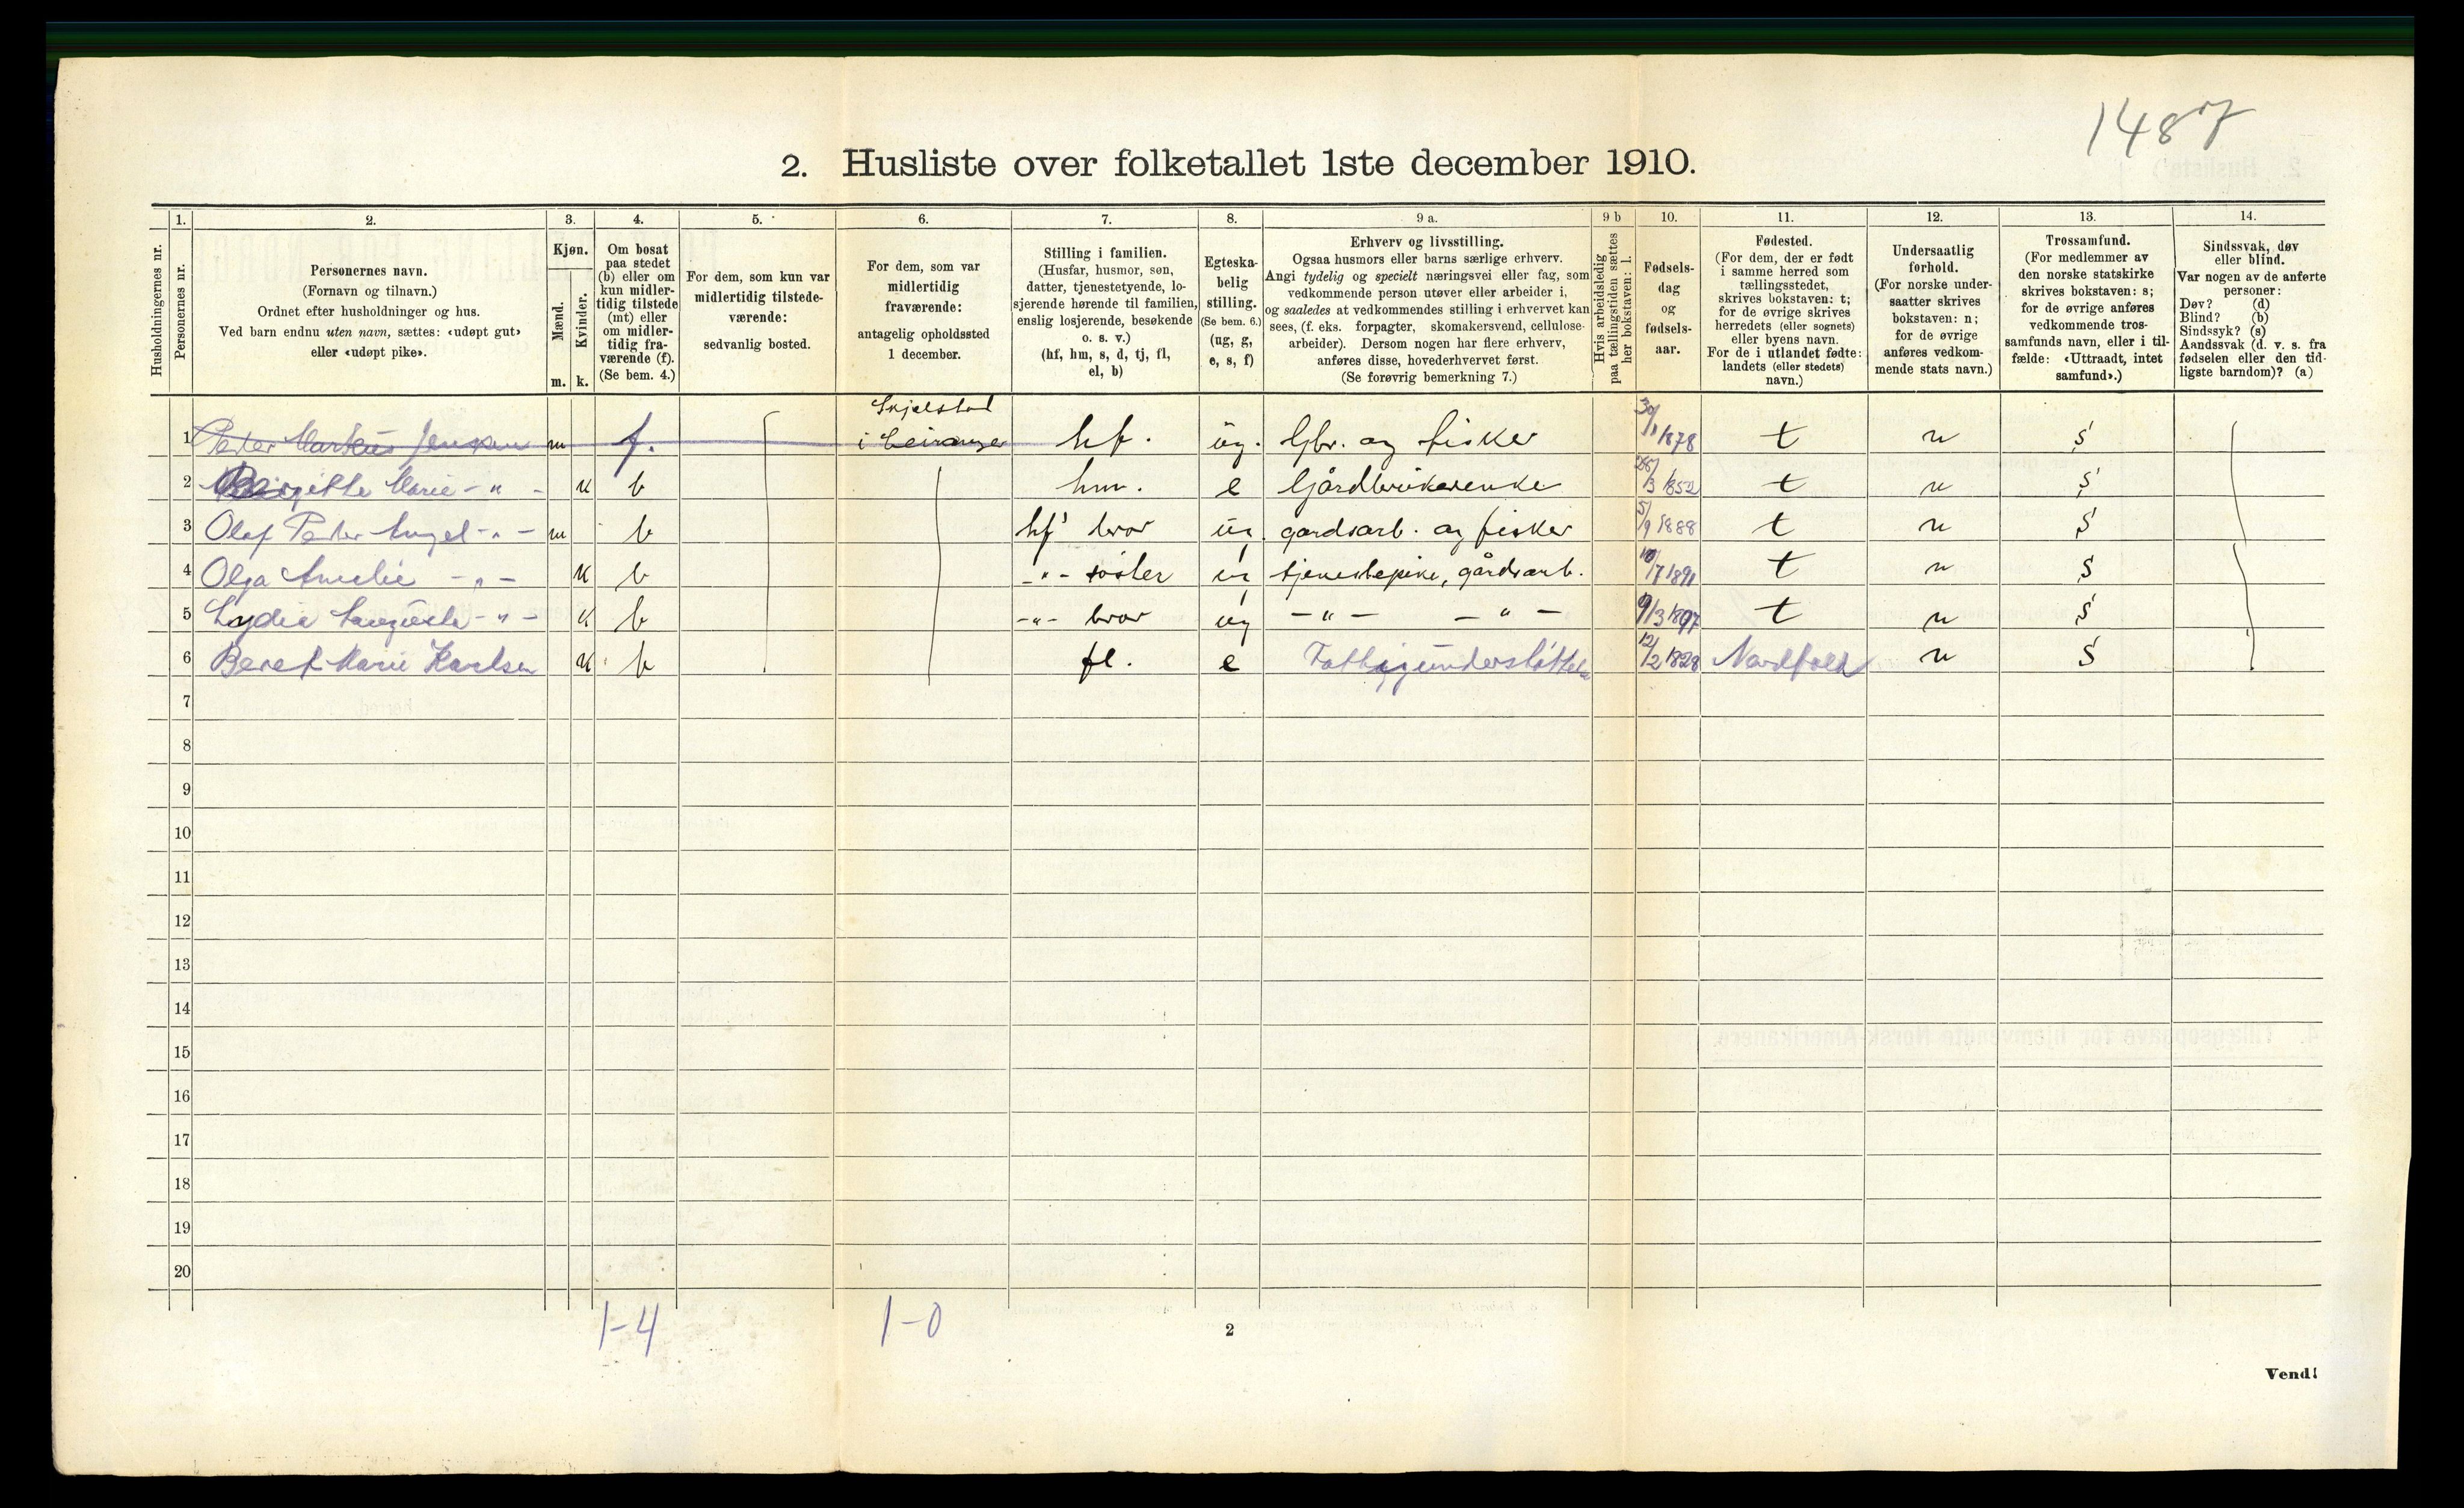 1487
2. Husliste over folketallet 1ste december 1910.
Husholdningernes nr.
1.
Personernes nr.
2.
Personernes navn.
(Fornavn og tilnavn.)
Ordnet efter husholdninger og hus.
Ved barn endnu uten navn, sættes: «udøpt gut»
eller «udøpt pike».
3.
Kjøn.
Mænd.
Kvinder.
m. k.
4.
Om bosat
paa stedet
(b) eller om
kun midler-
tidig tilstede
(mt) eller
om midler-
tidig fra-
værende (f).
(Se bem. 4.)
5.
For dem, som kun var
midlertidig tilstede-
værende:
sedvanlig bosted.
6.
For dem, som var
midlertidig
fraværende:
antagelig opholdssted
1 december.
7.
Stilling i familien.
(Husfar, husmor, søn,
datter, tjenestetyende, lo-
sjerende hørende til familien,
enslig losjerende, besøkende
o. s. v.)
(hf, hm, s, d, tj, fl,
el, b)
8.
Egteska-
belig
stilling.
(Se bem. 6.)
(ug, g,
e, s, f)
9 a.
Erhverv og livsstilling.
Ogsaa husmors eller barns særlige erhverv.
Angi tydelig og specielt næringsvei eller fag, som
vedkommende person utøver eller arbeider i,
og saaledes at vedkommendes stilling i erhvervet kan
sees, (f. eks. forpagter, skomakersvend, cellulose-
arbeider). Dersom nogen har flere erhverv,
anføres disse, hovederhvervet først.
(Se forøvrig bemerkning 7.)
9 b
Hvis arbeidsledig
paa tællingstiden sættes
her bokstaven: l.
10.
Fødsels-
dag
og
fødsels-
aar.
11.
Fødested.
(For dem, der er født
i samme herred som
tællingsstedet,
skrives bokstaven: t;
for de øvrige skrives
herredets (eller sognets)
eller byens navn.
For de i utlandet fødte:
landets (eller stedets)
navn.)
12.
Undersaatlig
forhold.
(For norske under-
saatter skrives
bokstaven: n;
for de øvrige
anføres vedkom-
mende stats navn.)
13.
Trossamfund.
(For medlemmer av
den norske statskirke
skrives bokstaven: s;
for de øvrige anføres
vedkommende tros-
samfunds navn, eller i til-
fælde: «Uttraadt, intet
samfund».)
14.
Sindssvak, døv
eller blind.
Var nogen av de anførte
personer:
Døv? (d)
Blind? (b)
Sindssyk? (s)
Aandssvak (d. v. s. fra
fødselen eller den tid-
ligste barndom)? (a)
Skjelstad
1 Peder Markus Jensen m f. i Leiranger hf. ug. Gbr. og fisker 30/1 1878 t n S
2 Birgitte Marie -"- k b hm. e Gårdbrukerenke 1852 t n S
3 Olaf Peder -"- m b hf's bror ug gardsarb. og fisker 5/9 1888 t n S
4 Olga Amelie -"- k b -"- søster ug tjenestepike, gårdsarb. 10/7 1891 t n S
5 Lydia -"- k b -"- bror ug -"- -"- 9/3 1897 t n S
6 Beret Marie Karlsen k b fl. e Fattigunderstøttelse 12/2 1828 Nordfold n S
7
8
9
10
11
12
13
14
15
16
17
18
19
20
1-4 1-0
2
Vend!